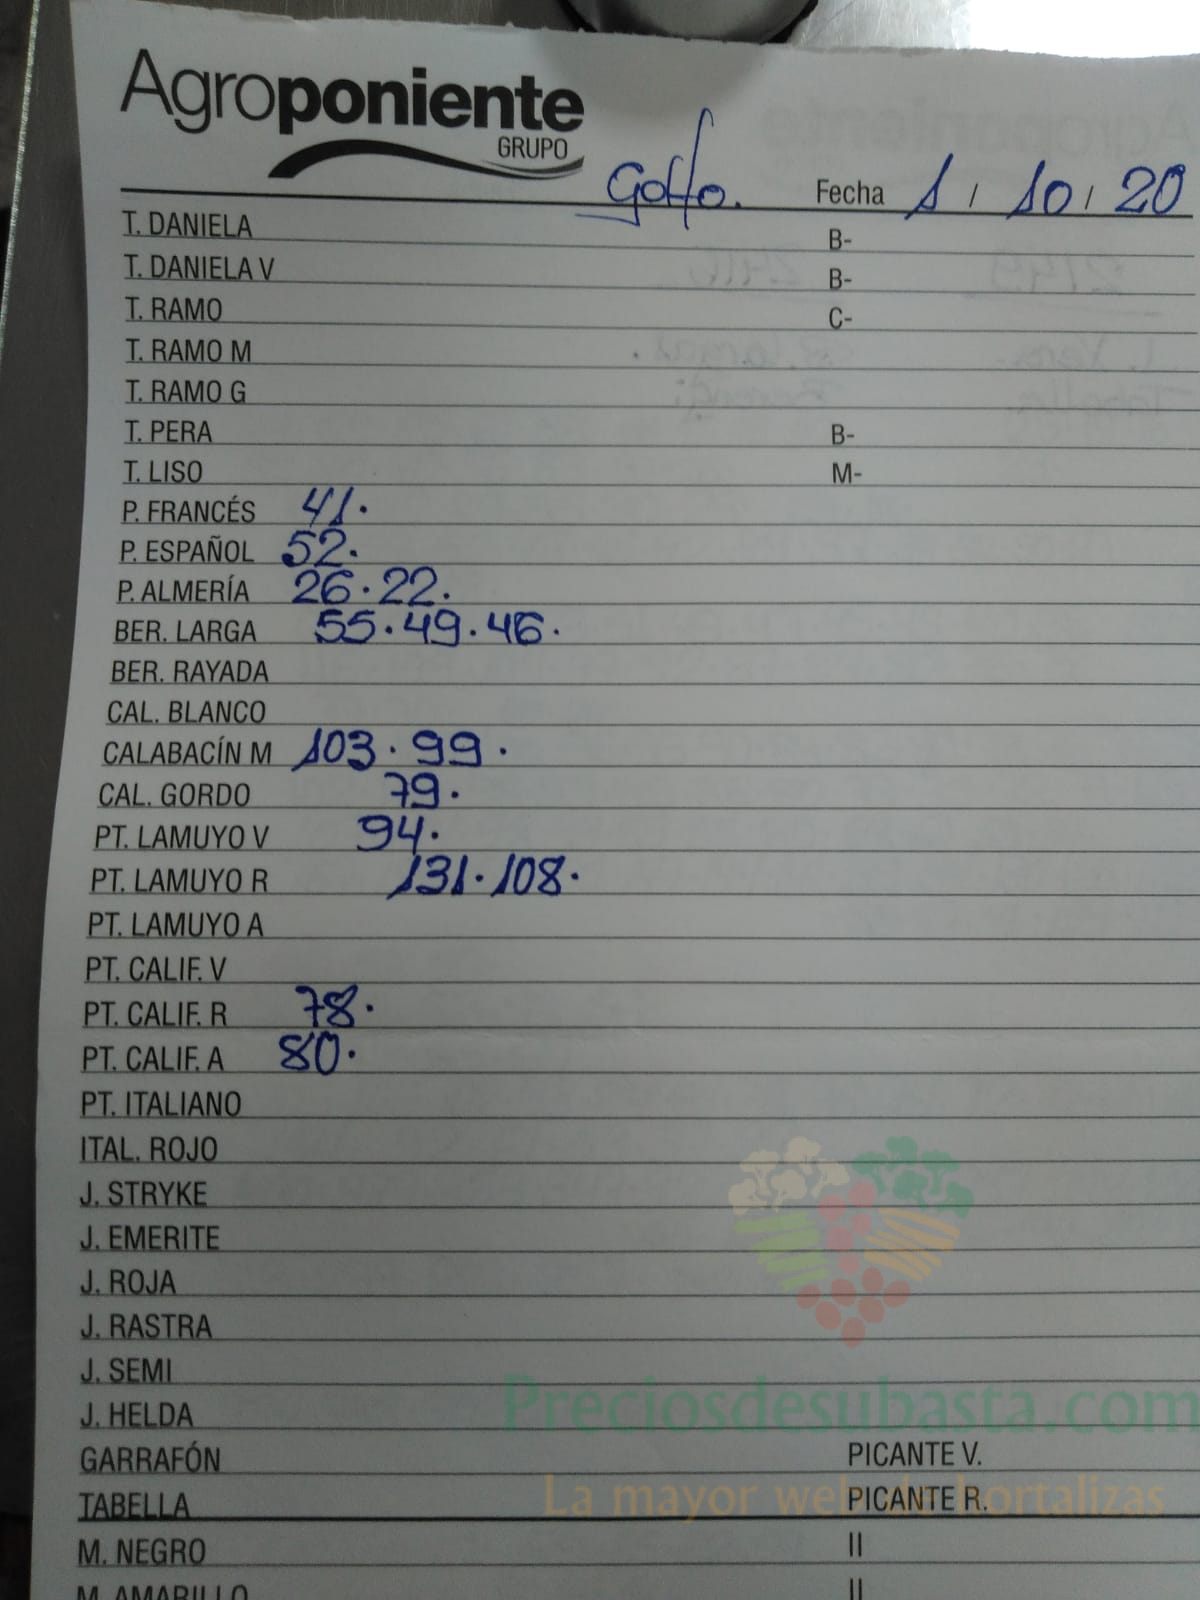 Agroponiente
GRUPO
Golfo. Fecha 1 / 10 / 20
T. DANIELA B-
T. DANIELA V B-
T. RAMO C-
T. RAMO M
T. RAMO G
T. PERA B-
T. LISO M-
P. FRANCÉS 41.
P. ESPAÑOL 52.
P. ALMERÍA 26.22.
BER. LARGA 55.49.46.
BER. RAYADA
CAL. BLANCO
CALABACÍN M 103.99.
CAL. GORDO 79.
PT. LAMUYO V 94.
PT. LAMUYO R 131.108.
PT. LAMUYO A
PT. CALIF. V
PT. CALIF. R 78.
PT. CALIF. A 80.
PT. ITALIANO
ITAL. ROJO
J. STRYKE
J. EMERITE
J. ROJA
J. RASTRA
J. SEMI
Preciosdesubasta.com
J. HELDA
GARRAFÓN PICANTE V.
La mayor web de hortalizas
TABELLA PICANTE R.
M. NEGRO II
M. AMARILLO II